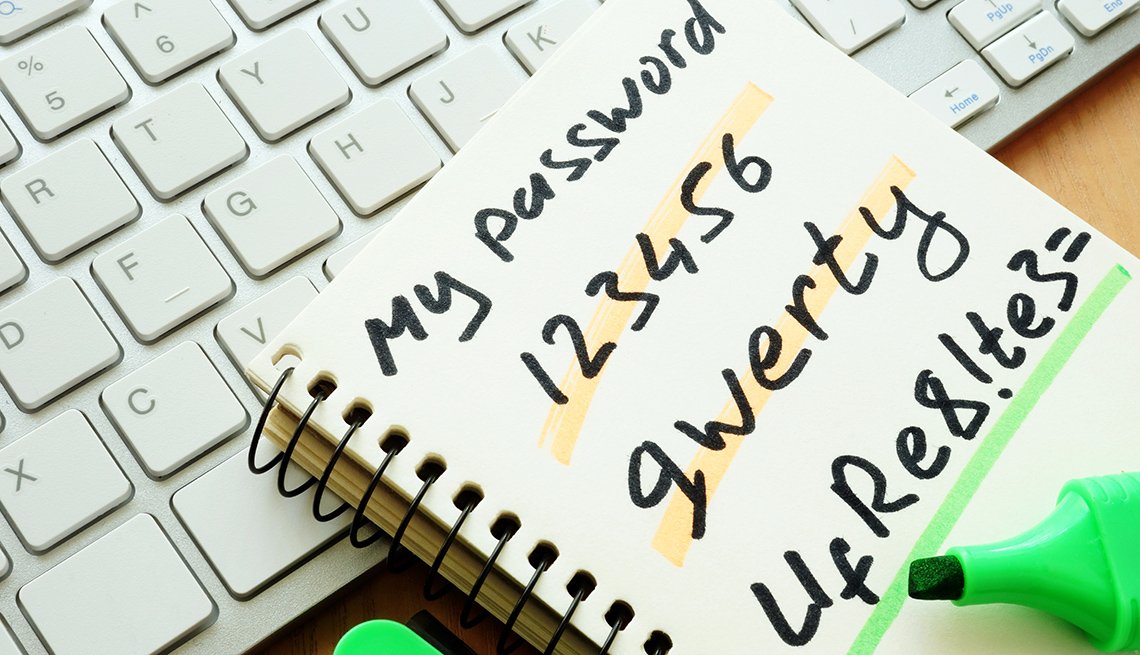 My password
123456
qwerty
UfRe8!te3=
^
6
U
K
/
PgUp
End
%
5
Y
J
PgDn
T
H
Home
R
G
F
V
D
C
X